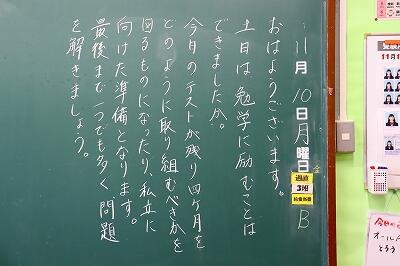 11月10日月曜日
金
週直
3班
B
おはようございます。
土日は勉学に励むことは
できましたか。
今日のテストが残り四ヶ月を
どのように取り組むべきかを
図るものになったり、私立に
向けた準備となります。
最後まで一つでも多く問題
を解きましょう。
オール
とろう